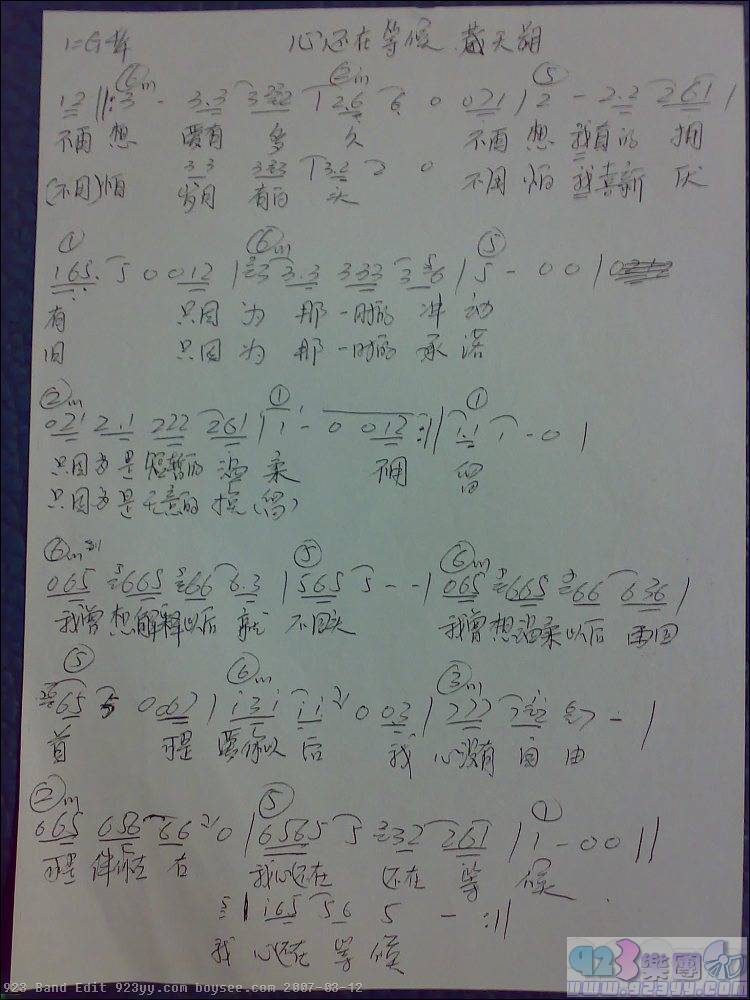 1=G 4/4 心还在等候 臧天朔
⑥m ②m ⑤
12 ||: 3 - 3.3 3332 | 126 6 0 021 | 2 - 2.2 261 |
不再想 要有多久 不再想我有的拥
3 3 333 | 13.2 2 0
(不用)怕 岁月有白头 不用怕我喜新厌
① ⑥m ⑤
165. 5 0 012 | 33 3.3 333 3 36 | 5 - 0 0 |
有 只因为那一时的冲动
旧 只因为那一时的承诺
②m ① ①
021 2.1 222 261 | 1 - 0 012 :|| 1.1 1 - 0 |
只因为是短暂的温柔 不用 留
只因为是无意的挽(留)
⑥m ⑤ ⑥m
065 665 66 6.3 | 565 5 - - | 065 665 66 636 |
我曾想解释以后就不回头 我曾想温柔以后再回
⑤ ⑥m ③m
65 5 0067 | i3i ii 0 03 | 222 2i2 7 - |
首 可是 要你以后 我心没有自由
②m ⑤ ①
665 656 66 0 | 6565 5 332 261 | 1 - 0 0 ||
可是伴你左右 我心还在 还在等候
5 | i65 56 5 - :||
我心还在等候
923 Band Edit 923yy.com boysee.com 2007-03-12
923樂團
www.923yy.com